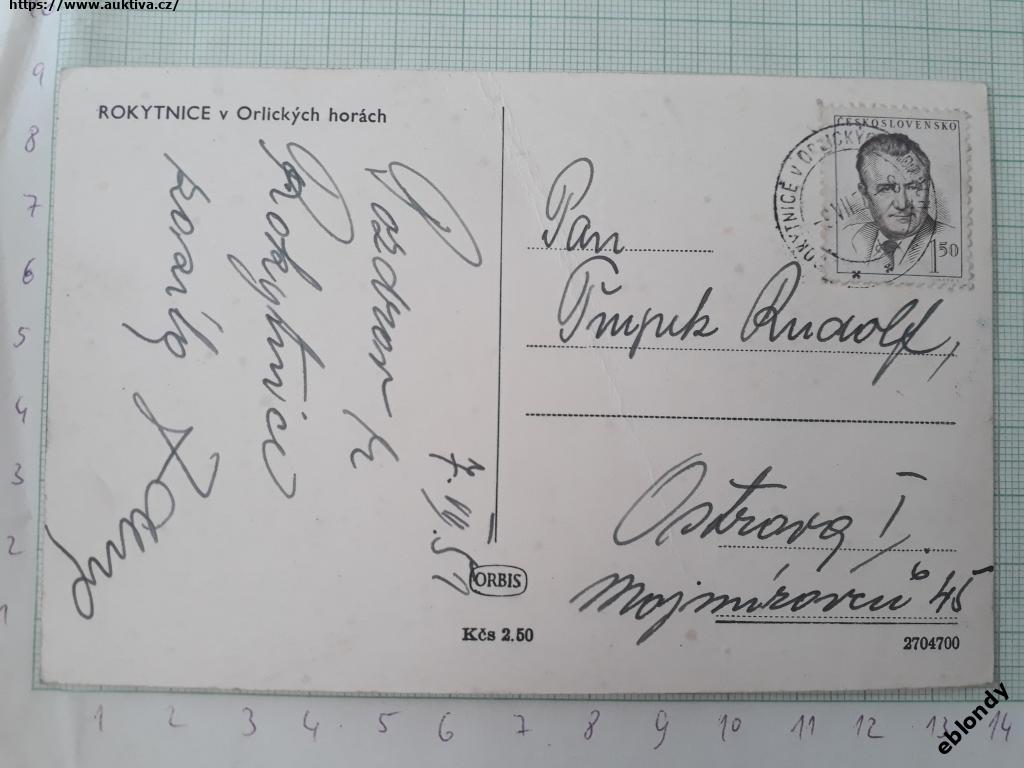 https://www.auktiva.cz/
ROKYTNICE v Orlických horách
Pozdrav z
Rokytnice
7. VII. 51
ČESKOSLOVENSKO
1 50
ROKYTNICE v ORLICKÝCH
Pan
Rudolf,
Ostrava I,
Mojmírovců č. 45
ORBIS
Kčs 2.50
2704700
9
8
7
6
5
4
3
2
1
1 2 3 4 5 6 7 8 9 10 11 12 13 14
eblondy